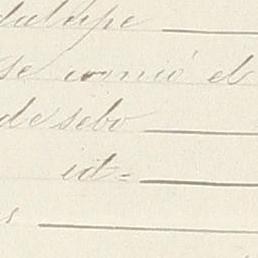 dalupe
se comió el
de sebo
id =
s